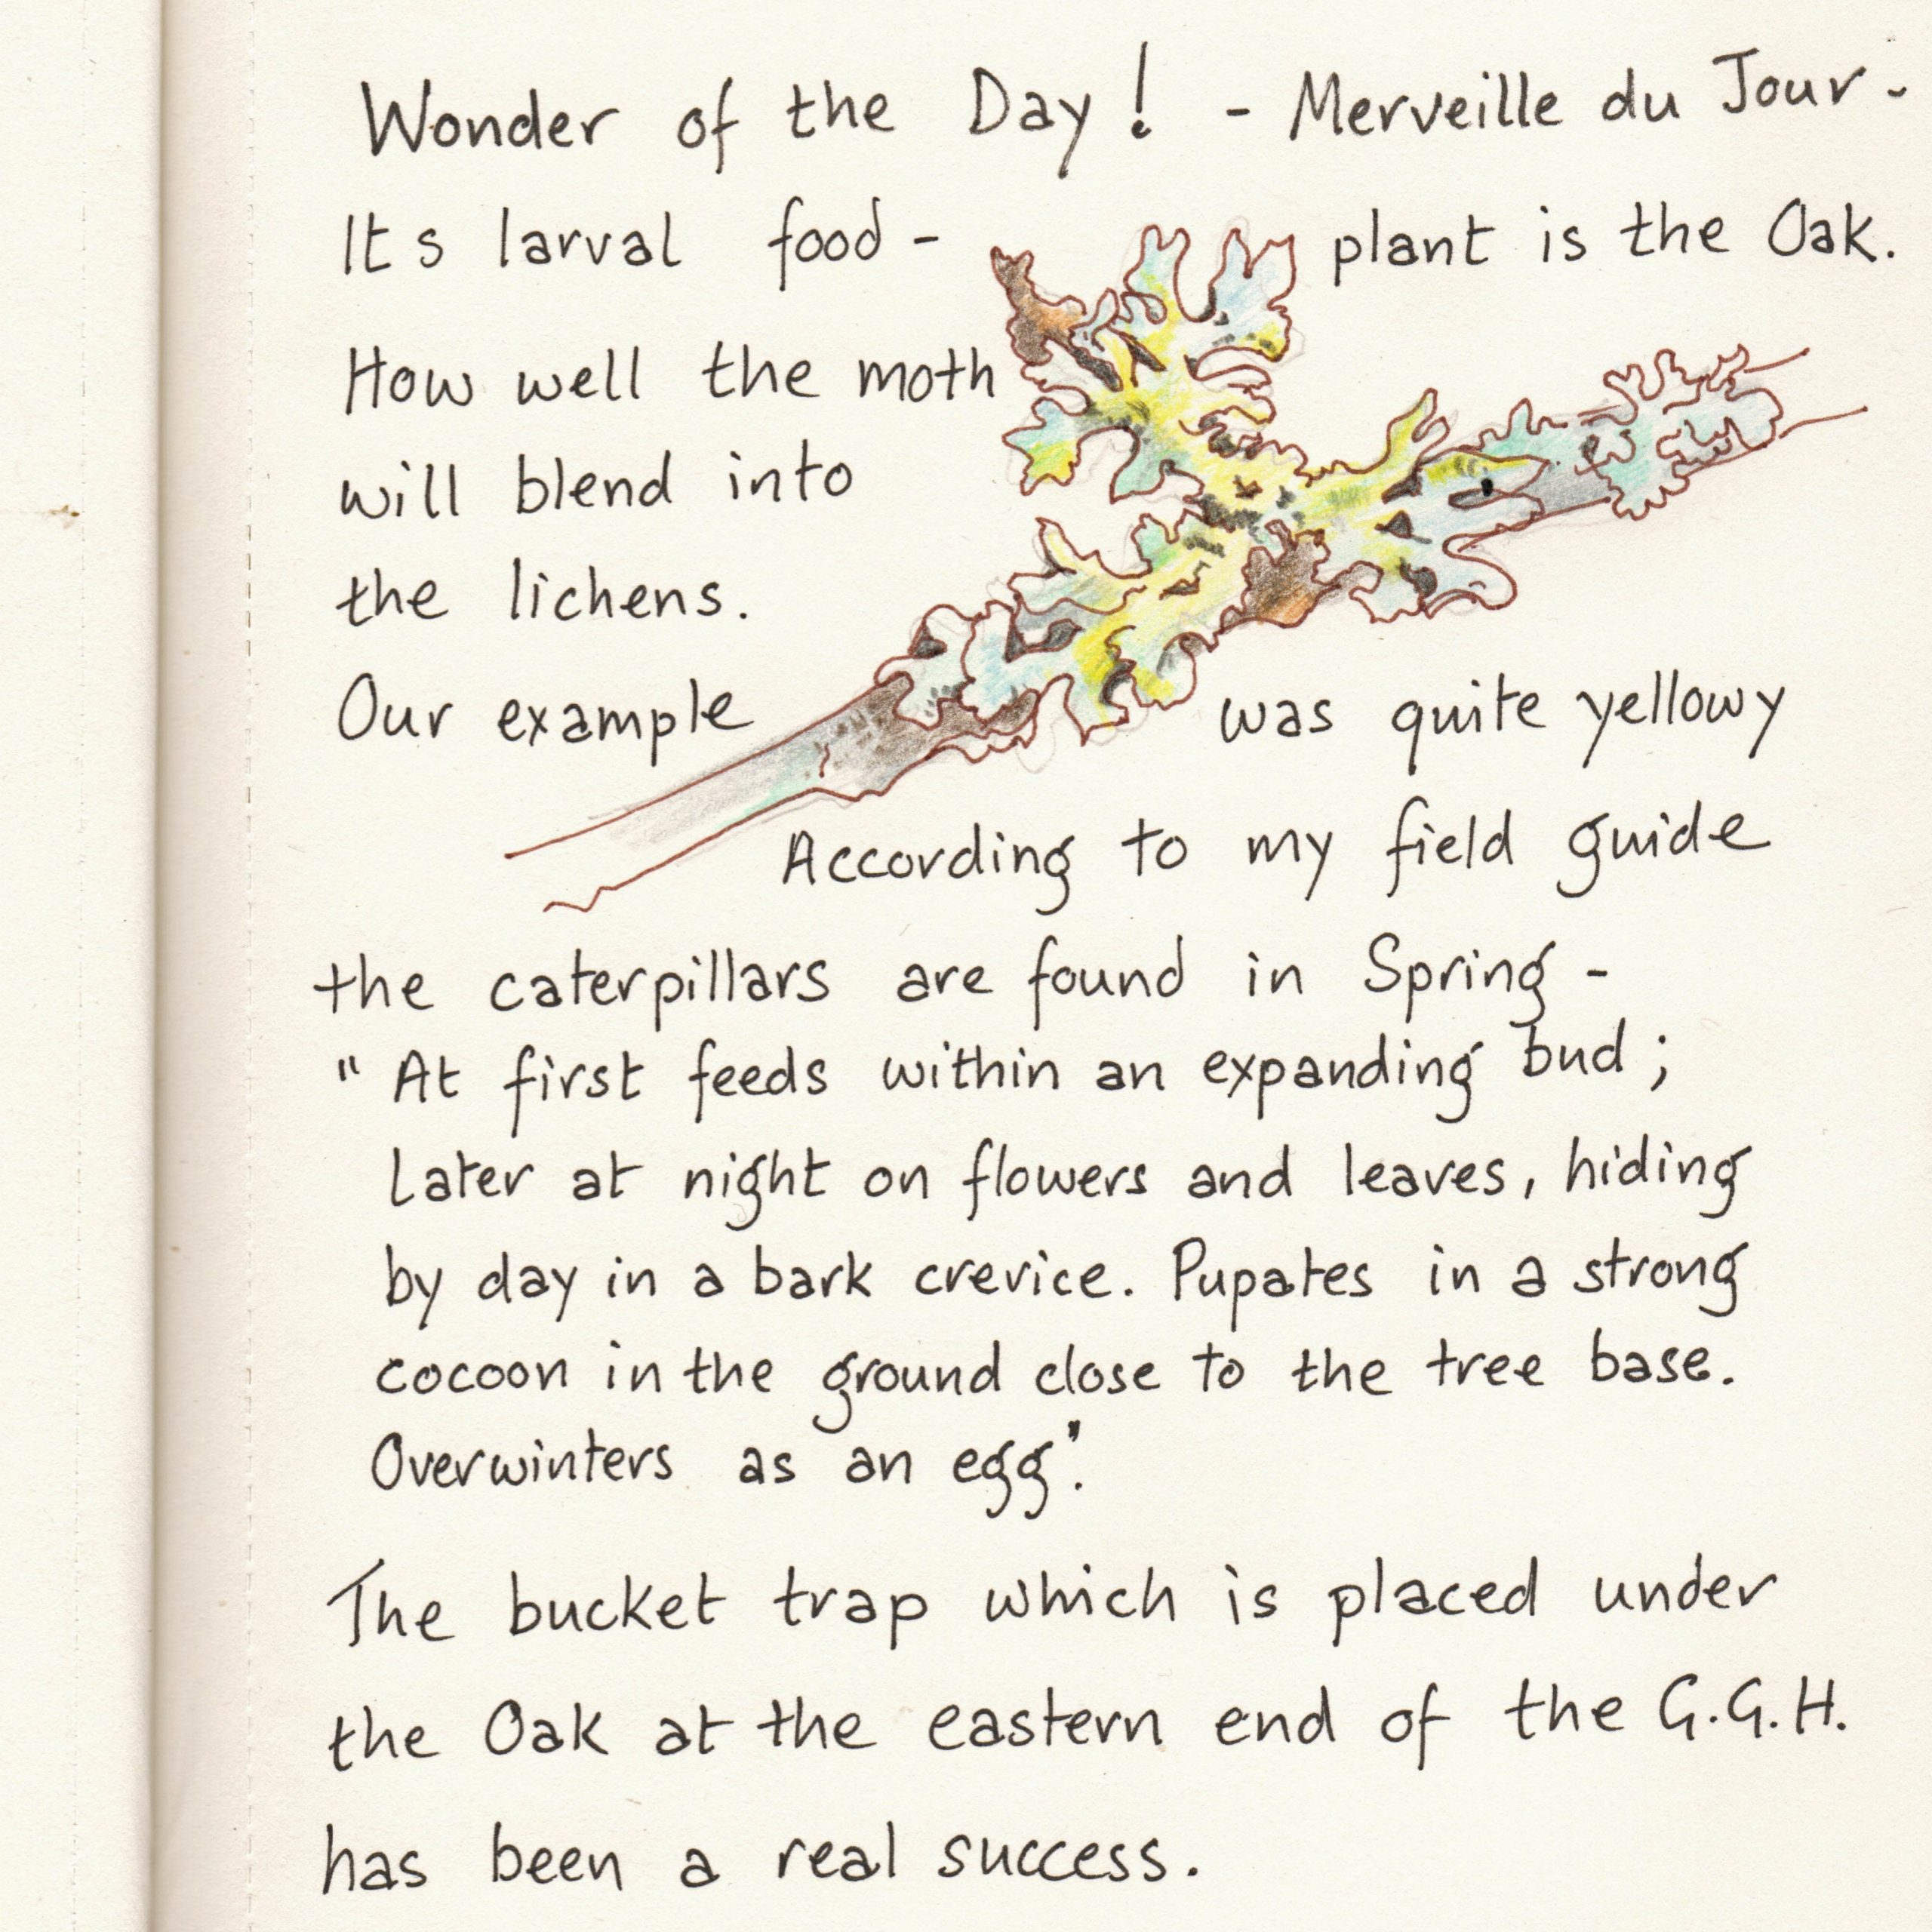 Wonder of the Day! - Merveille du Jour -
Its larval food - plant is the Oak.
How well the moth
will blend into
the lichens.
Our example was quite yellowy
According to my field guide
the caterpillars are found in Spring -
" At first feeds within an expanding bud ;
Later at night on flowers and leaves, hiding
by day in a bark crevice. Pupates in a strong
cocoon in the ground close to the tree base.
Overwinters as an egg".
The bucket trap which is placed under
the Oak at the eastern end of the G.G.H.
has been a real success.